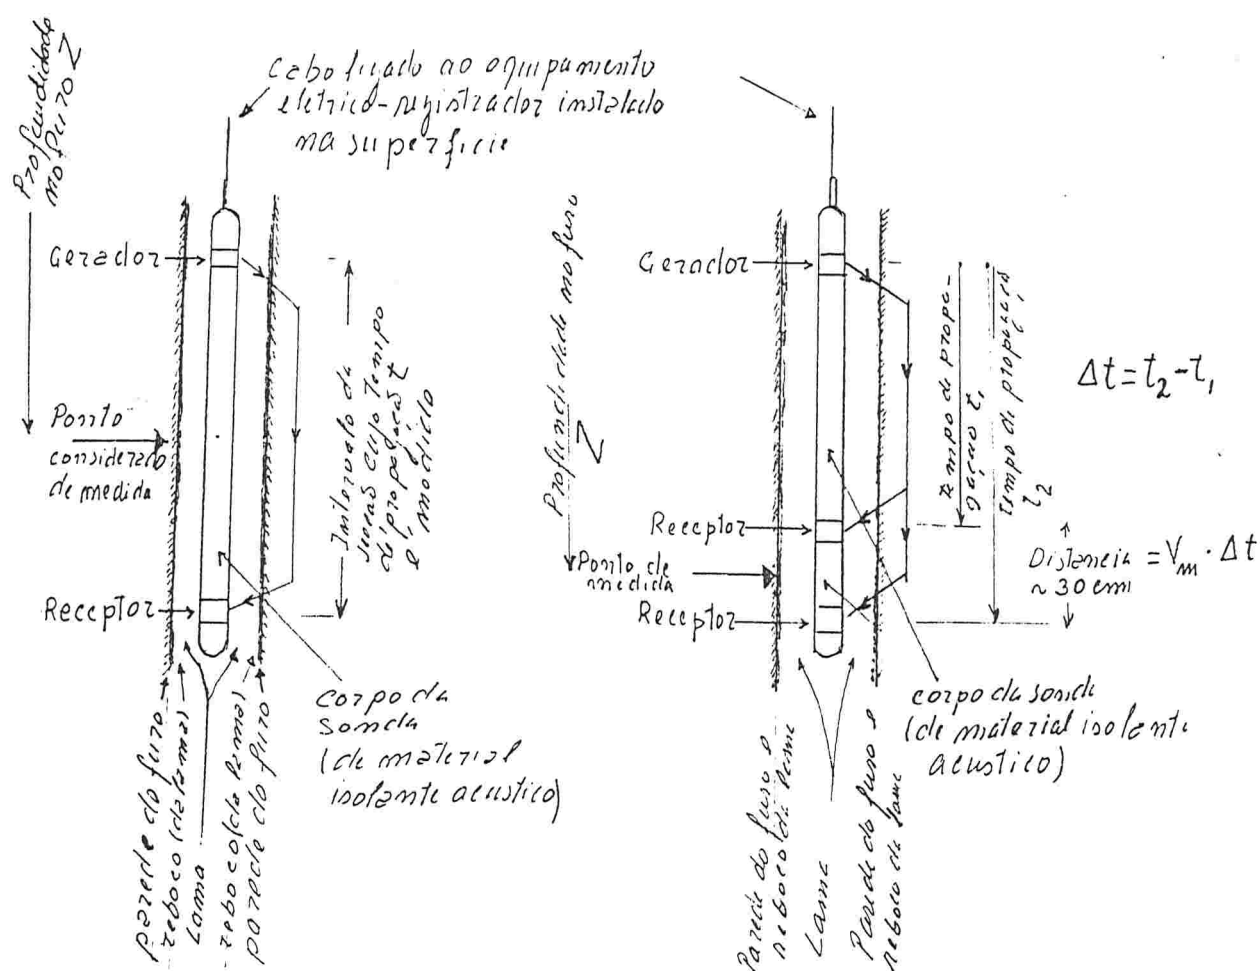 Profundidade
no furo Z
cabo ligado ao equipamento
elétrico-registrador instalado
na superficie
Gerador
Ponto
considerado
de medida
Receptor
Intervalo da
cujo tempo
de propagação t
é medido
corpo da
sonda
(de material
isolante acustico)
parede do furo
reboco (da lama)
Lama
reboco (da lama)
parede do furo
Profundidade no furo
Z
Gerador
Receptor
Ponto de
medida
Receptor
tempo de propa-
gação t₁
tempo de propagação
t₂
Δt = t₂ - t₁
Distancia
~ 30 cm
= Vm · Δt
corpo da sonda
(de material isolante
acustico)
Parede do furo e
reboco da lama
Lama
Parede do furo e
reboco da lama